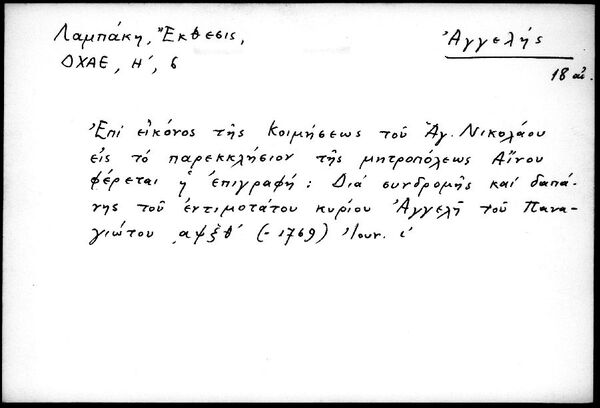 Λαμπάκη, Ἔκθεσις,
ΔΧΑΕ, Η΄, 6
Ἀγγελής
18 αἰ.
Ἐπί εἰκόνος τῆς Κοιμήσεως τοῦ Ἁγ. Νικολάου
εἰς τό παρεκκλήσιον τῆς μητροπόλεως Αἴνου
φέρεται ἡ ἐπιγραφή: Διά συνδρομῆς καί δαπά-
νης τοῦ ἐντιμοτάτου κυρίου Ἀγγελῆ τοῦ Πανα-
γιώτου ͵αψξθ΄ (= 1769) Ἰουν. ι΄